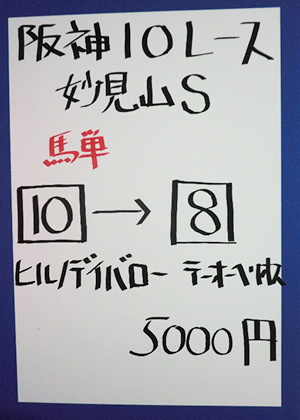 阪神10レース
妙見山S
馬単
10→8
ヒルノデイバロー テーオーヘリオス
5000円